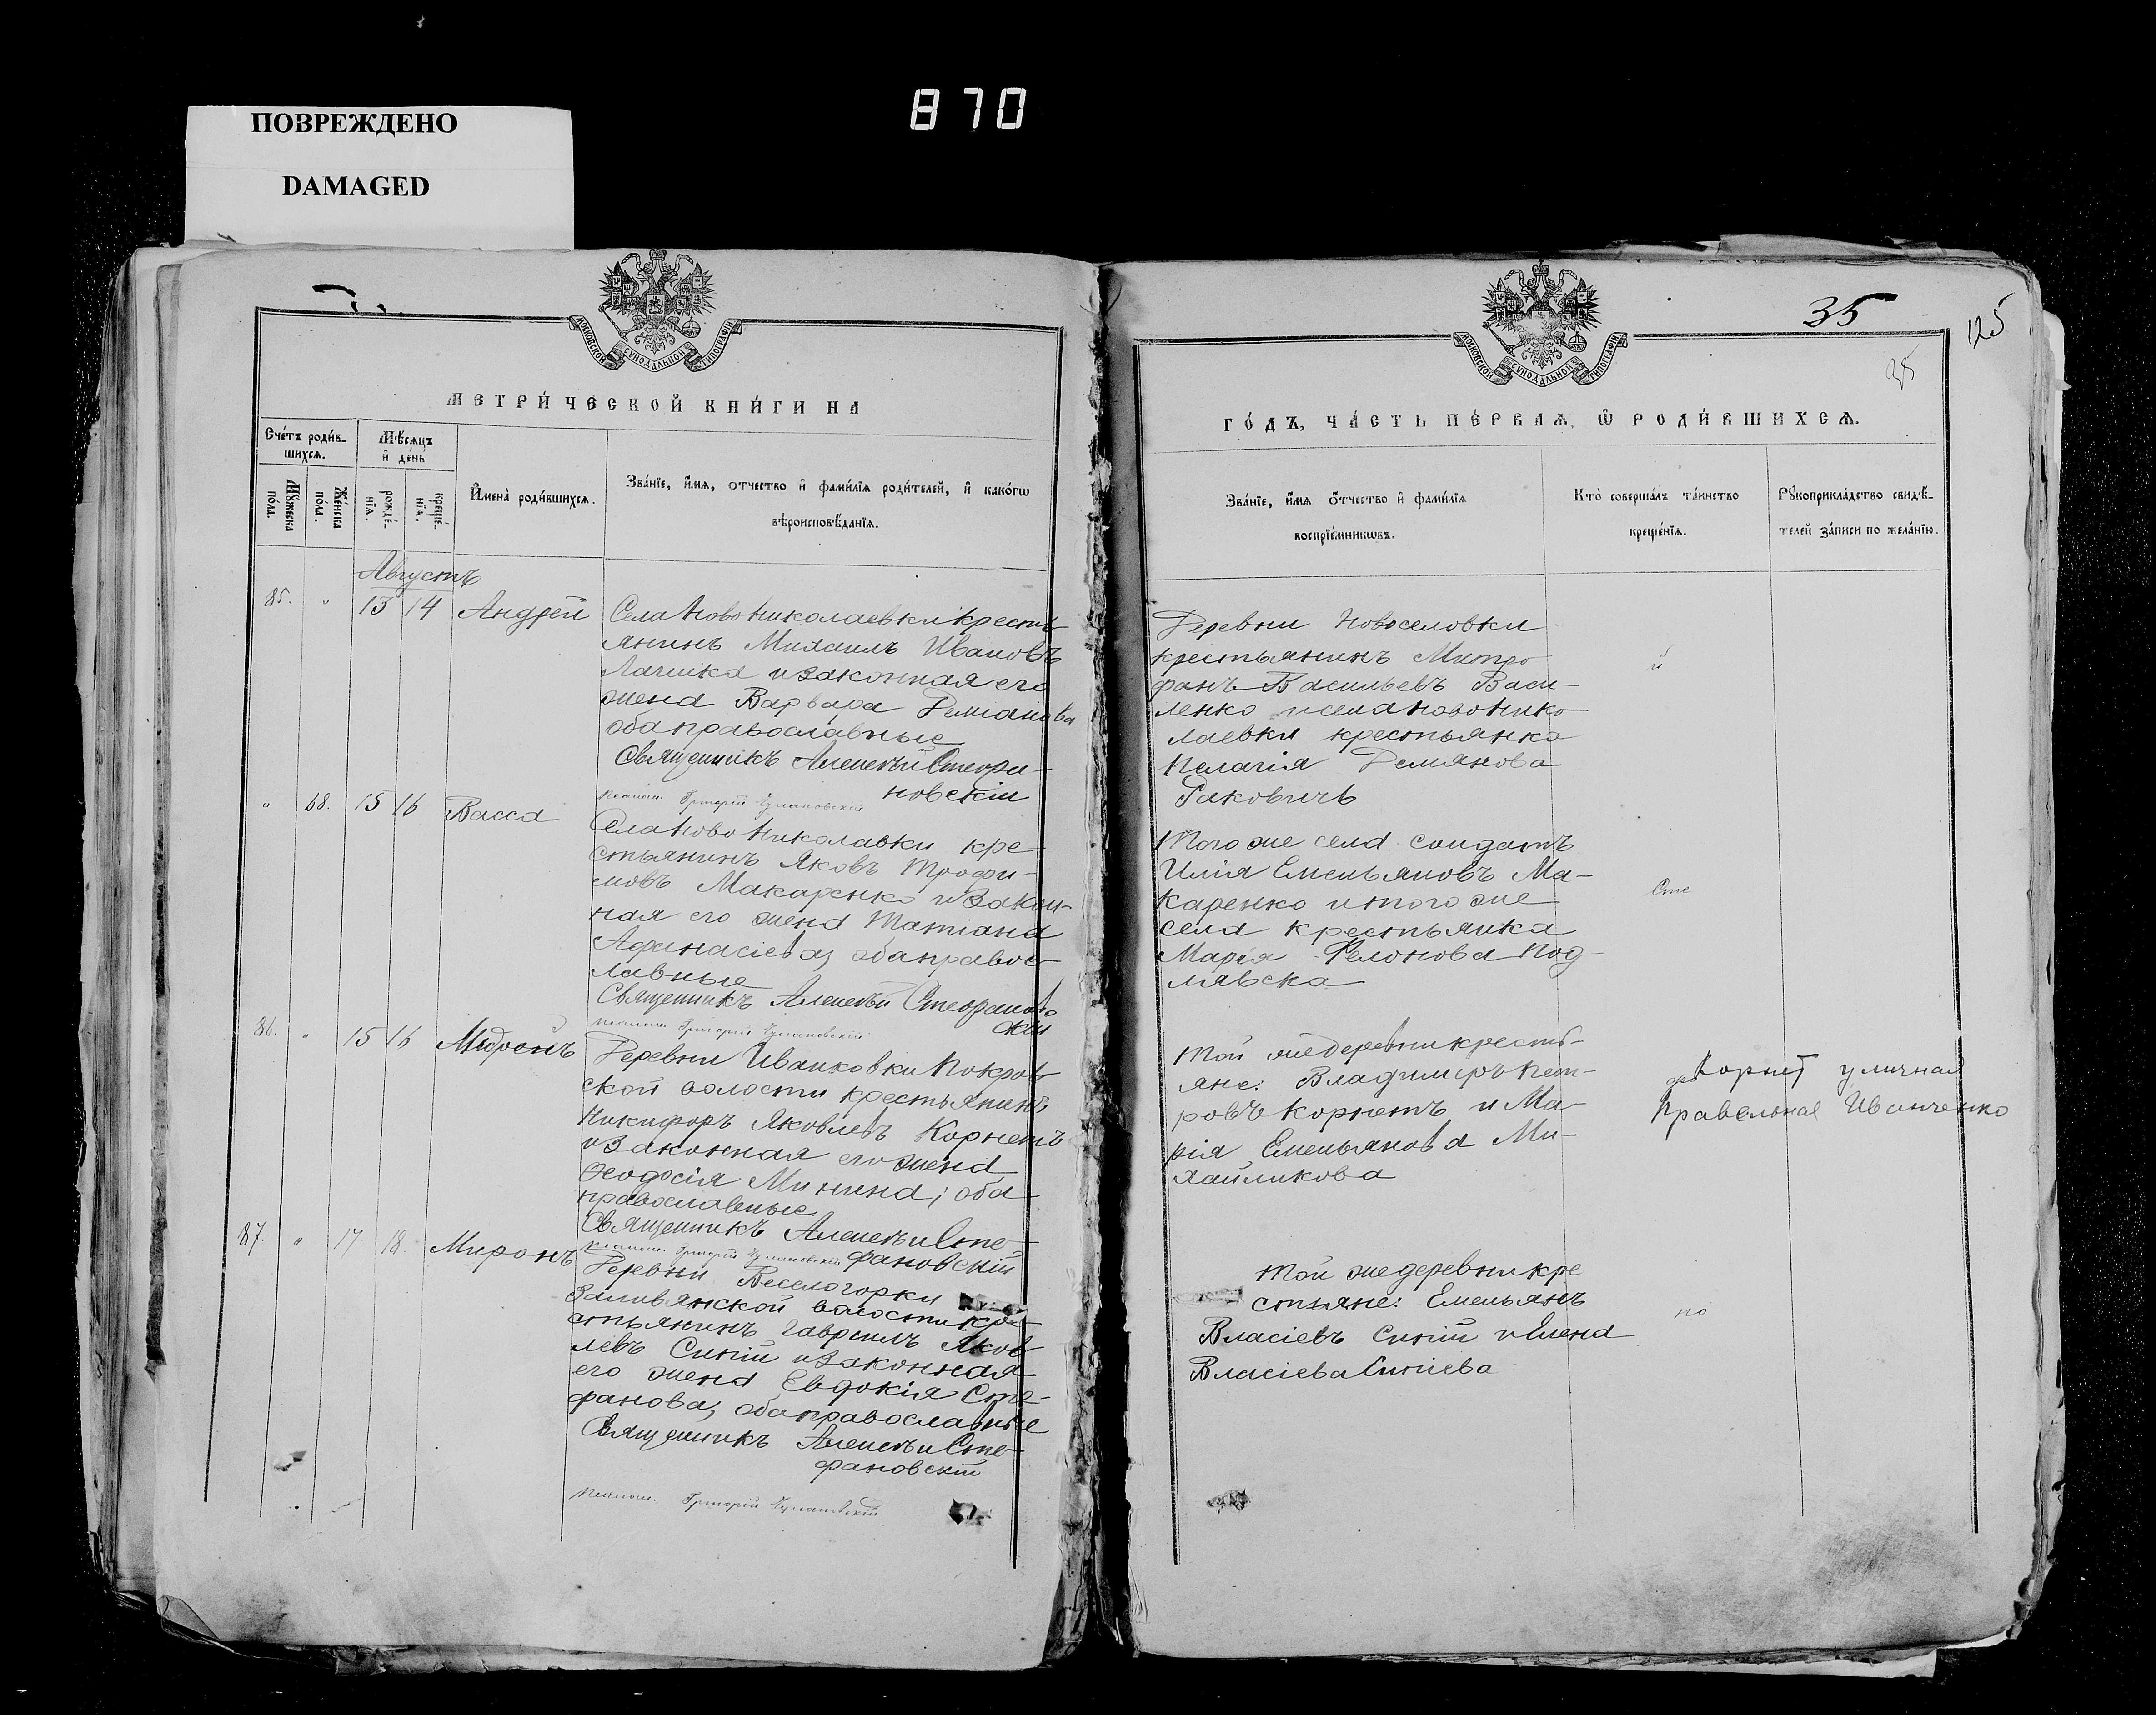 870
ПОВРЕЖДЕНО
DAMAGED
МОСКОВСКОЙ СѴНОДАЛЬНОЙ ТИПОГРАФІИ
МЕТРИ́ЧЕСКОЙ КНИ́ГИ НА
Сче́тъ роди́в-
шихсѧ.
Мѣ́сѧцъ
и҆ де́нь
Мꙋ́жеска по́ла.
Же́нска по́ла.
рожде́-
нїѧ.
креще́-
нїѧ.
И҆мена̀ роди́вшихсѧ.
Зва́нїе, и҆́мѧ, ѻ҆́тчество и҆ фами́лїѧ роди́телей, и҆ како́гѡ
вѣроисповѣ́данїѧ.
Августъ
85. " 13 14 Андрей
Села Новониколаевки кресть
янинъ Михаилъ Ивановъ
и законная его
жена Варвара Демianова
оба православные
Священникъ Алексѣй Стефа-
новскій
Псалом. Григорій
" 68. 15 16 Васса
Села Новониколавки кре-
стьянинъ Яковъ Трофи-
мовъ Макаренко и закон-
ная его жена Татіана
Афанасіева, оба правос-
лавные
Священникъ Алексѣй Стефановс
кій
Псалом. Григорій
86. " 15 16 Миронъ
Деревни Иванковки Покров
ской волости крестьянинъ
Никифоръ Яковлевъ Корнетъ
и законная его жена
Ѳеодосія Минина; оба
православные
Священникъ Алексѣй Сте-
фановскій
Псалом. Григорій
87. " 17 18. Миронъ
Деревни Веселогорки
Заливянской волости кре-
стьянинъ Гавріилъ Яков
левъ Синій и законная
его жена Евдокія Сте-
фанова, оба православные
Священникъ Алексѣй Сте-
фановскій
Псалом. Григорій
МОСКОВСКОЙ СѴНОДАЛЬНОЙ ТИПОГРАФІИ
35
125
ГО́ДЪ, ЧА́СТЬ ПЕ́РВАѦ, Ѡ҆ РОДИ́ВШИХСѦ.
Зва́нїе, и҆́мѧ ѻ҆́тчество и҆ фами́лїѧ
воспрїе́мникѡвъ.
Кто̀ соверша́лъ та́инство
креще́нїѧ.
Рꙋкоприкла́дство свидѣ́-
телей за́писи по жела́нїю.
Деревни Новоселовки
крестьянинъ Митро
фанъ Васильевъ Васи-
ленко и села Новонико
лаевки крестьянка
Пелагія Демянова
Раковичъ
Того же села солдатъ
Илія Емельяновъ Ма-
каренко и того же
села крестьянка
Марія Филонова Под-
лявска
Сте
Той же деревни кресть-
яне: Владиміръ Пет-
ровъ Корнетъ и Ма-
рія Емельянова Ми-
хайликова
Корнет уличная
Правельная Иванченко
Той же деревни кре
стьяне: Емельянъ
Власіевъ Синій и Елена
Власіева Синіева
но